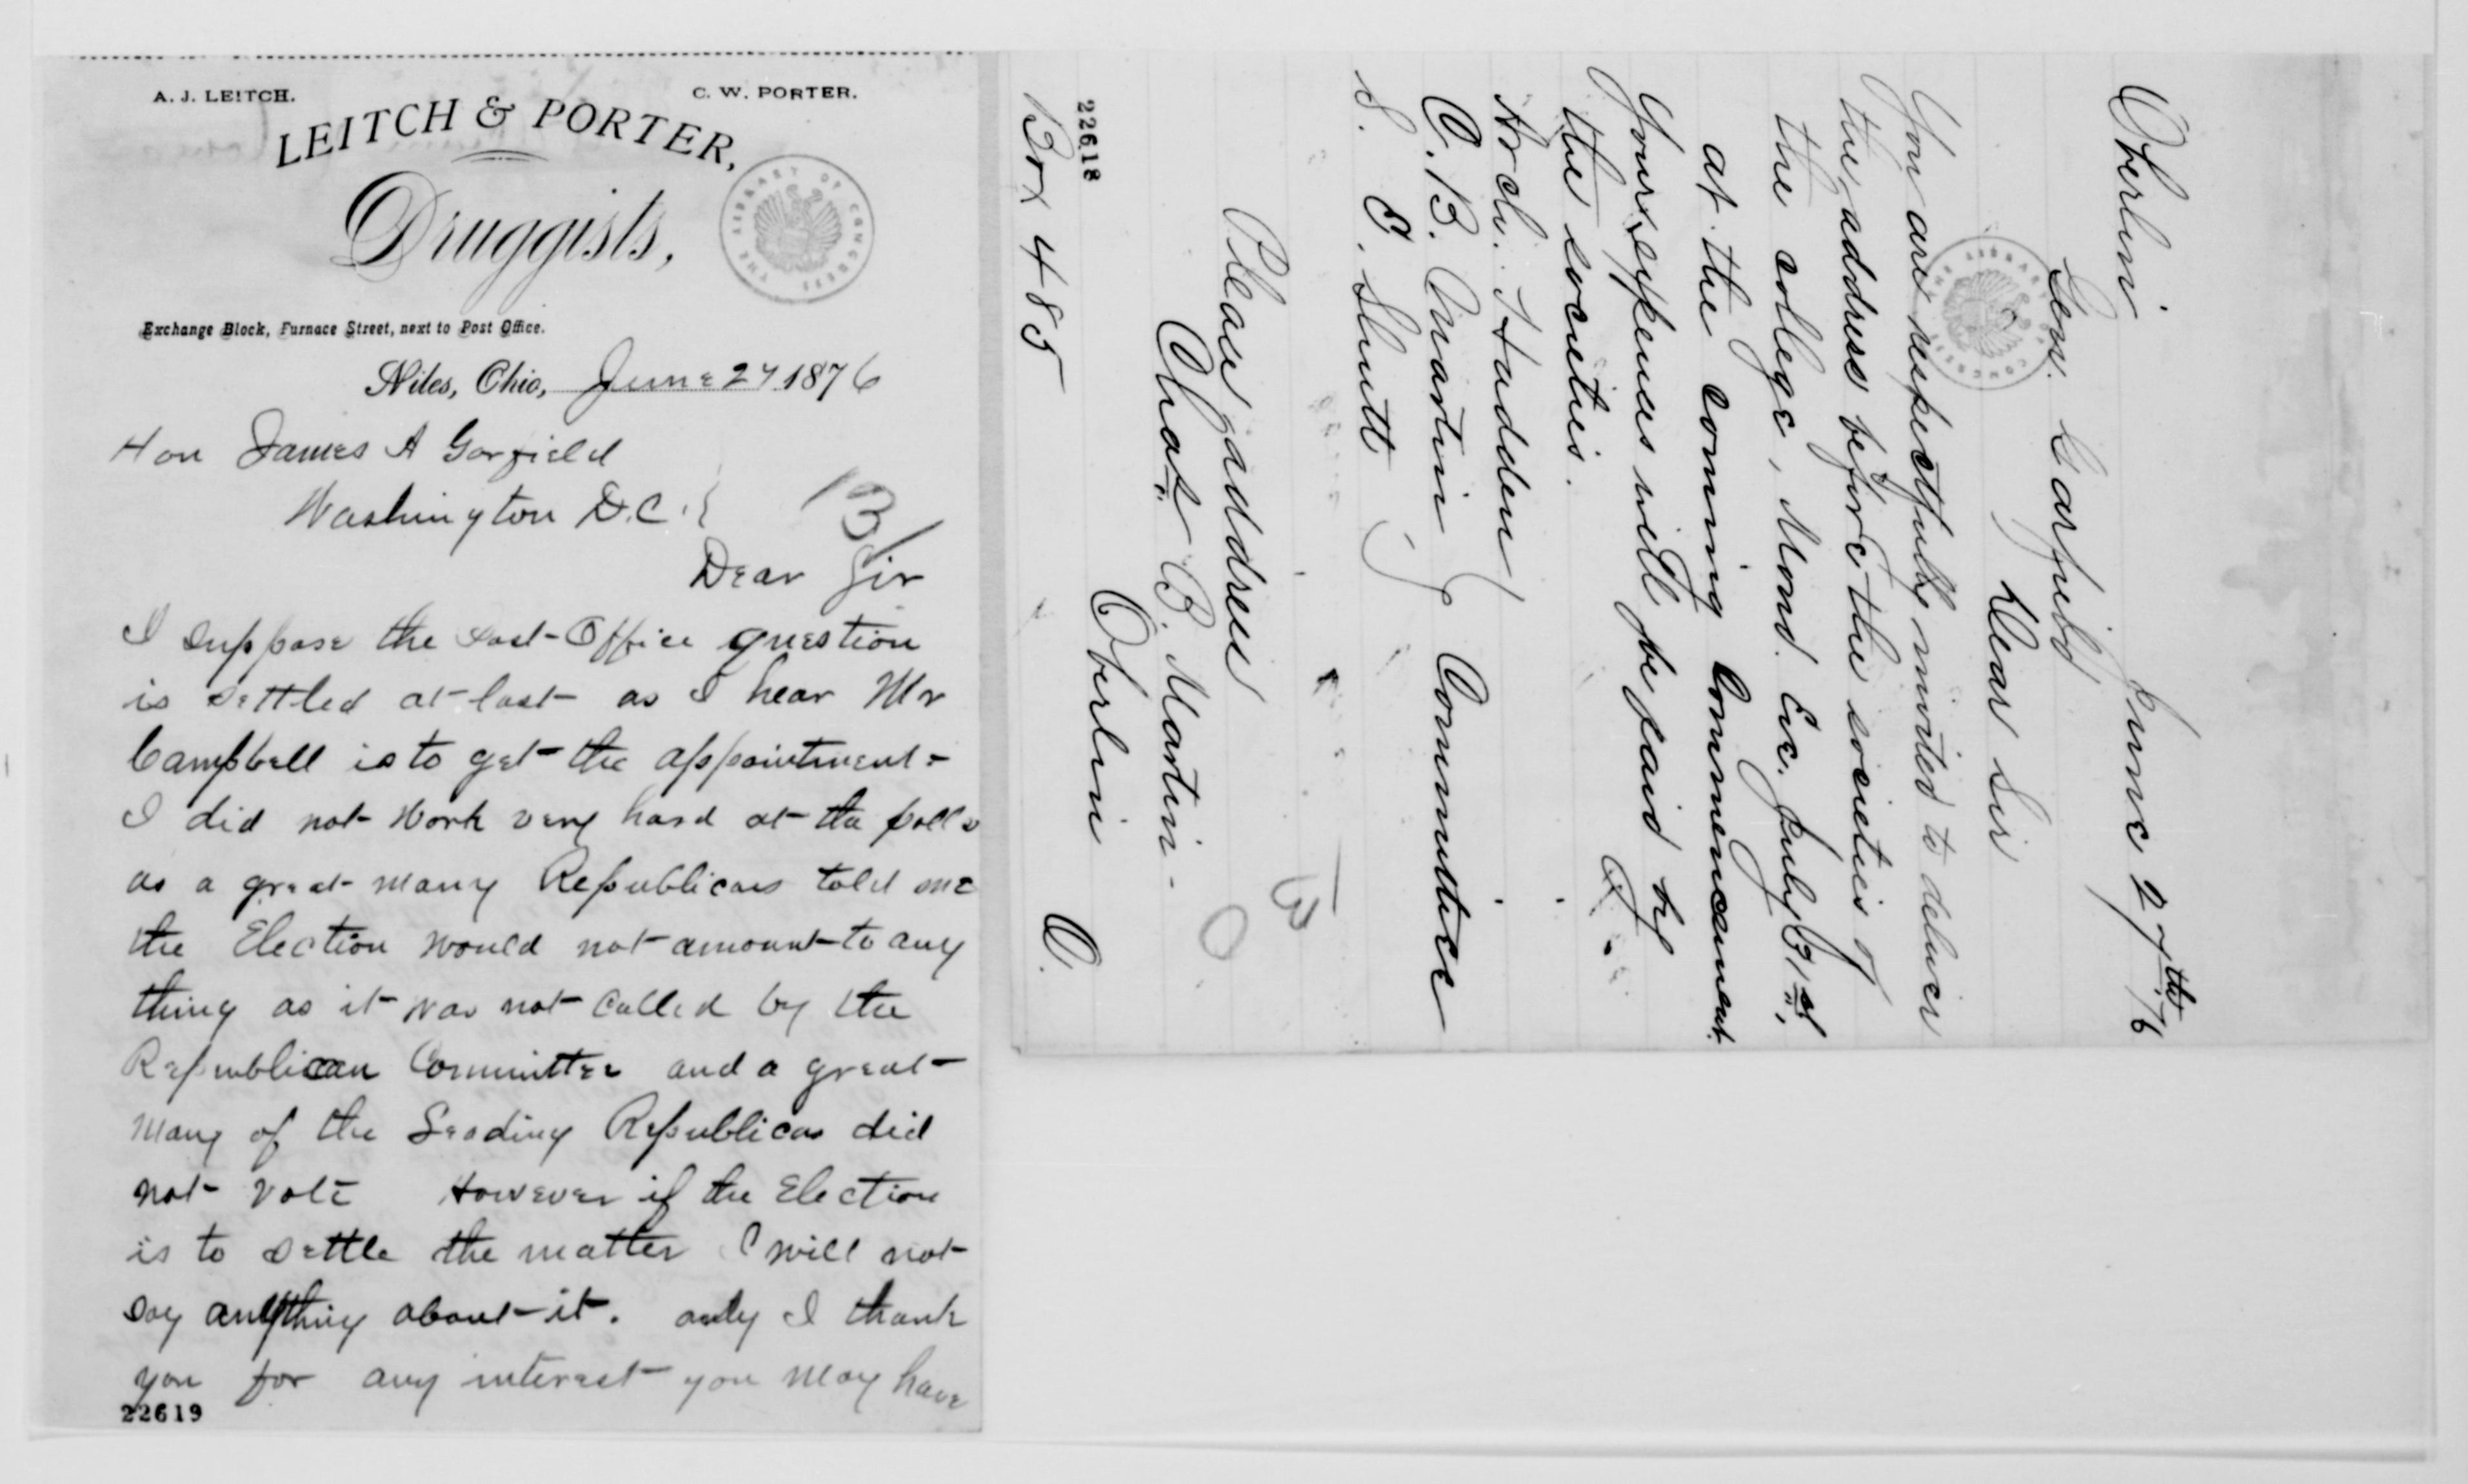 A. J. LEITCH.
C. W. PORTER.
LEITCH & PORTER,
Druggists,
THE LIBRARY OF CONGRESS
Exchange Block, Furnace Street, next to Post Office.
Niles, Ohio, June 27 1876
Hon James A Garfield
Washington D.C.
Dear Sir
I suppose the Post-Office question
is settled at last as I hear Mr
Campbell is to get the appointment-
I did not work very hard at the polls
as a great many Republicans told me
the Election would not amount to any
thing as it was not called by the
Republican Committee and a great
many of the Leading Republicas did
not vote However if the Election
is to settle the matter I will not
say anything about it. only I thank
you for any interest you may have
22619
Oberlin June 27th /76
Gen. Garfield
Dear Sir
You are respectfully invited to deliver
the address before the societies of
the college, Mond. Eve. July 31st,
at the coming Commencement.
Your expenses will be paid by
the societies.
Arch. Hadden
C. B. Martin } Committee
S. E. Shutt
Please address
Chas. B. Martin -
Oberlin
O.
Box 485
22618
THE LIBRARY OF CONGRESS